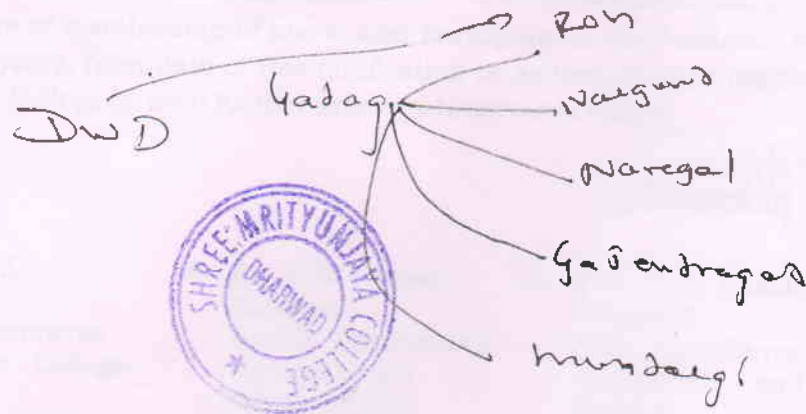 Ron
DWD
Gadag
Nargund
Naregal
Gajendragad
Mundargi
SHREE MRITYUNJAYA COLLEGE
DHARWAD
*